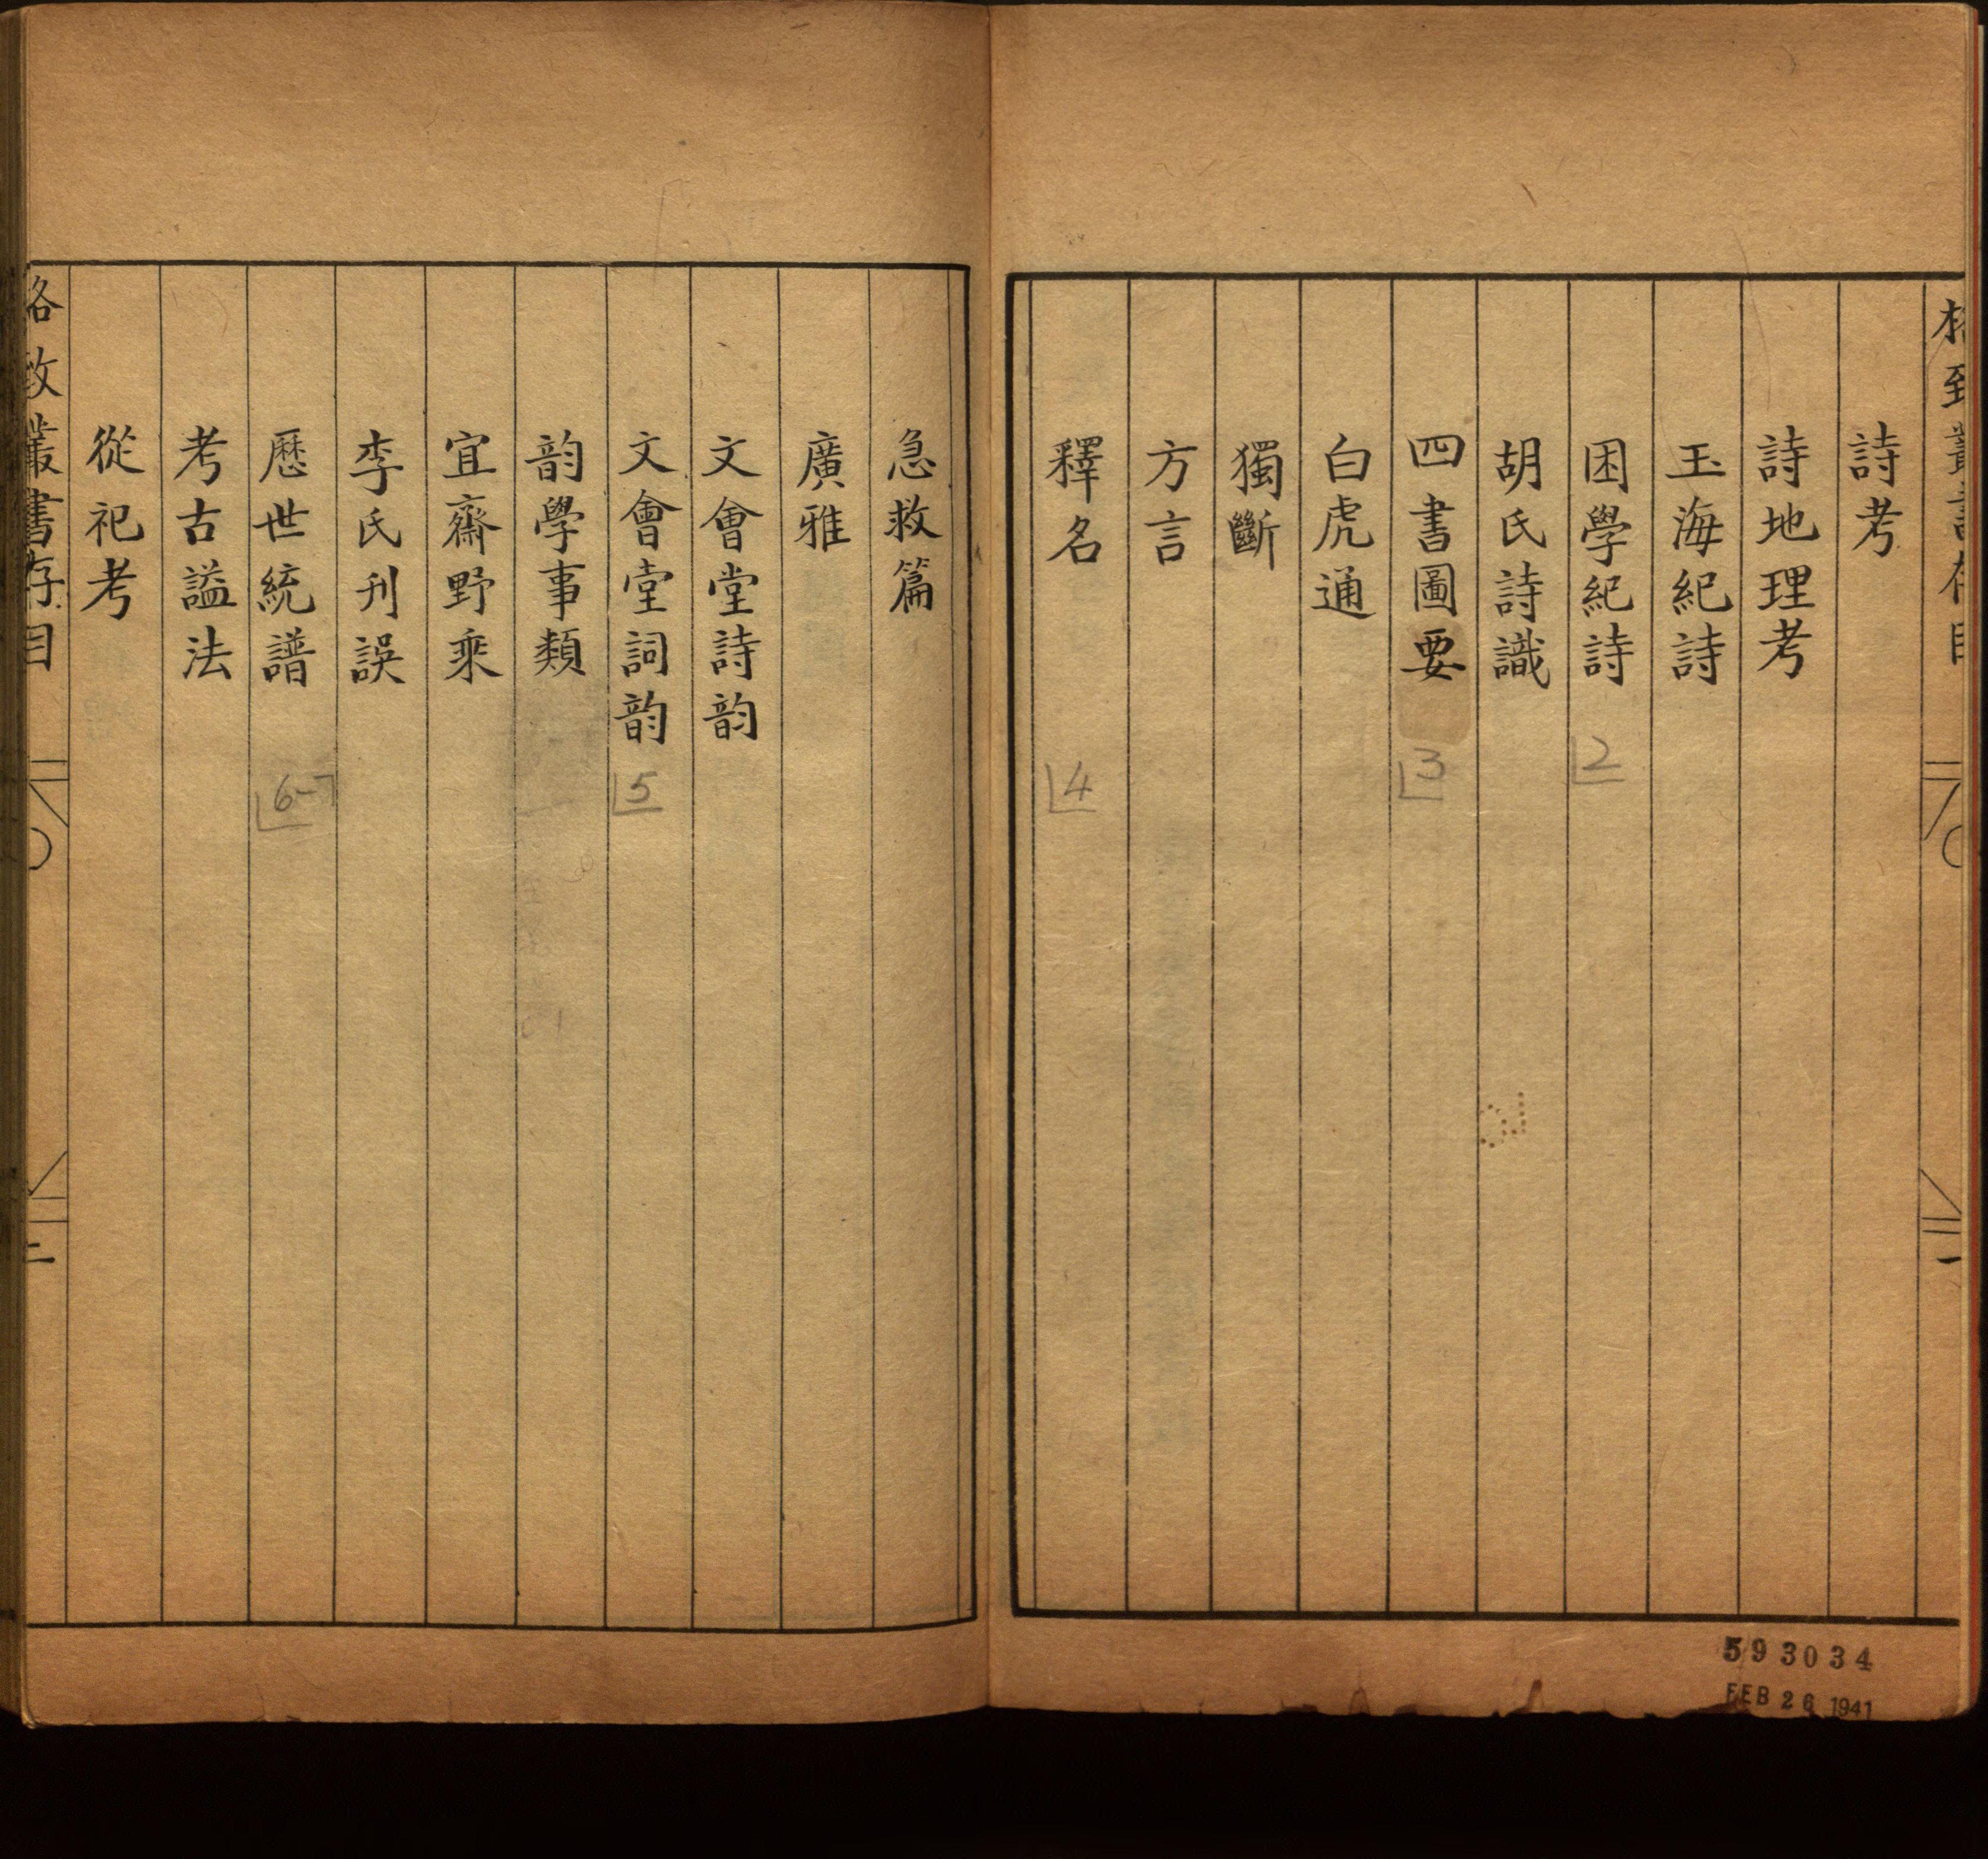 格致叢書存目
一
詩考
詩地理考
玉海紀詩
困學紀詩
2
胡氏詩識
四書圖要
3
白虎通
獨斷
方言
釋名
4
593034
FEB 26 1941
急救篇
廣雅
文會堂詩韵
文會堂詞韵
5
韵學事類
宜齋野乘
李氏刋誤
歷世統譜
6-7
考古謚法
從祀考
格致叢書存目
二